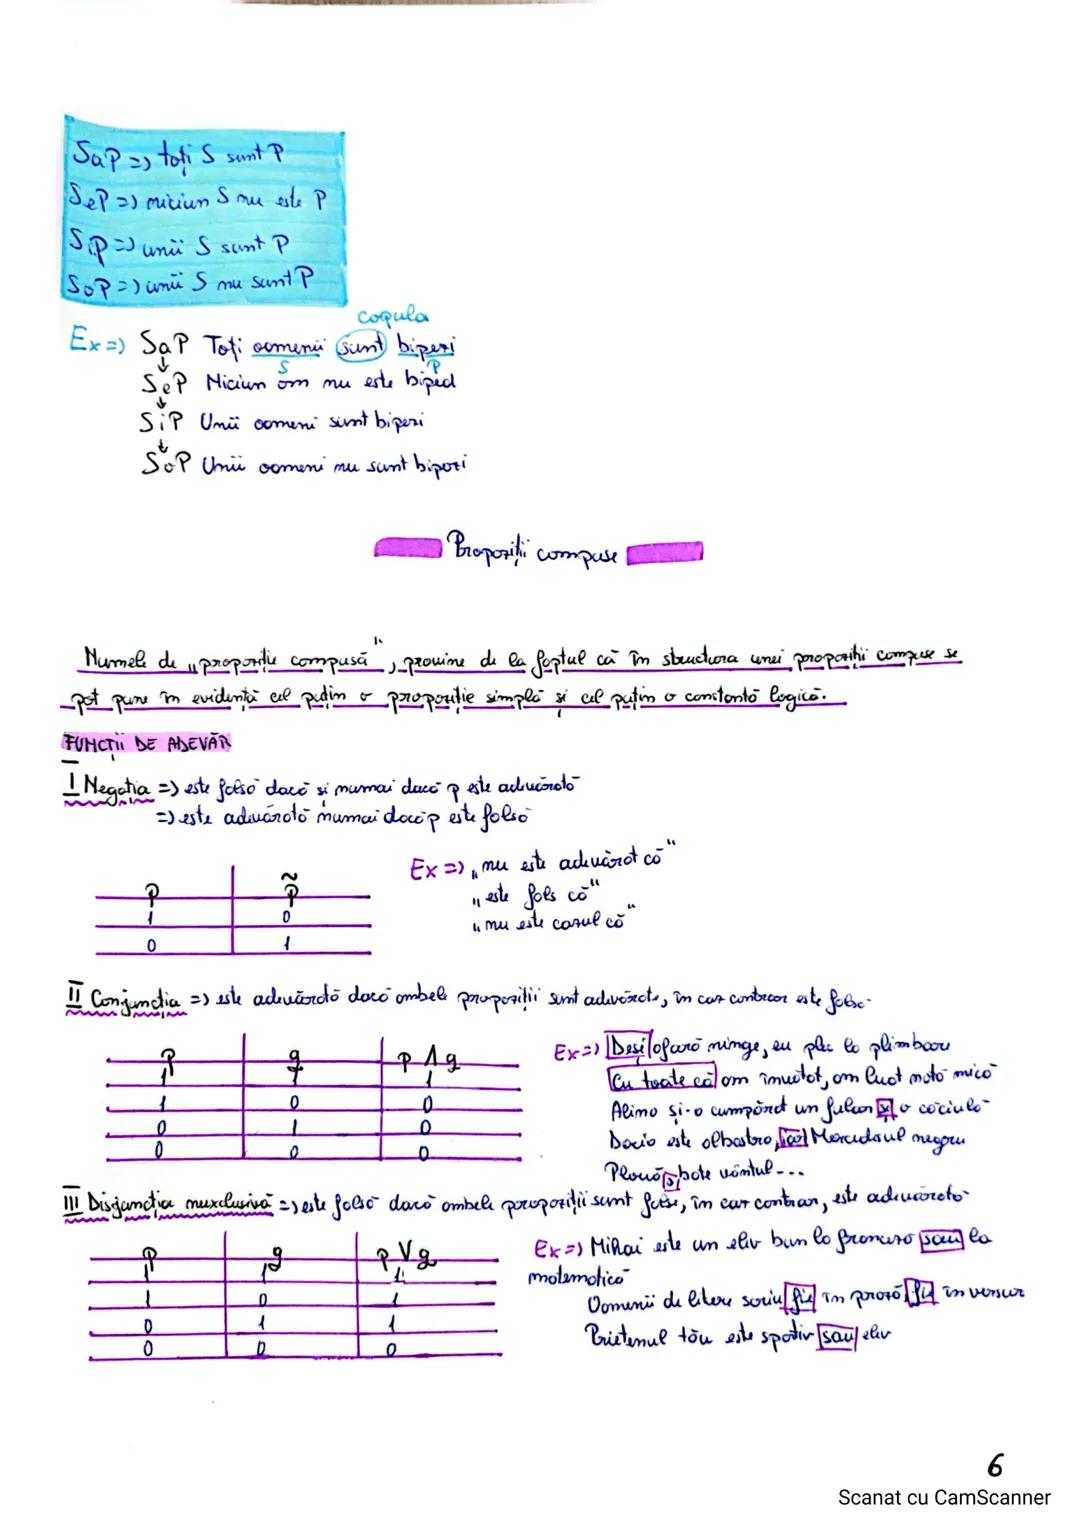 SaP => toți S sunt P
SeP => niciun S nu este P
SiP => unii S sunt P
SoP => unii S nu sunt P
copula
Ex => SaP Toți oamenii sunt bipezi
S P
SeP Niciun om nu este biped
SiP Unii oameni sunt bipezi
SoP Unii oameni nu sunt bipezi
Propoziții compuse
Numele de „propoziție compusă", provine de la faptul că în structura unei propoziții compuse se
pot pune în evidență cel puțin o propoziție simplă și cel puțin o constantă logică.
FUNCȚII DE ADEVĂR
I Negația => este falsă dacă și numai dacă p este adevărată
=> este adevărată numai dacă p este falsă
Ex => „nu este adevărat că"
„este fals că"
„nu este cazul că"
p p̃
1 0
0 1
II Conjuncția => este adevărată dacă ambele propoziții sunt adevărate, în caz contrar este falsă.
p q p Λ q
1 1 1
1 0 0
0 1 0
0 0 0
Ex => Deși afară ninge, eu plec la plimbare
Cu toate că am învățat, am luat notă mică
Alina și-a cumpărat un fular și o căciulă
Dacia este albastră, iar Mercedesul negru
Plouă și bate vântul...
III Disjuncția neexclusivă => este falsă dacă ambele propoziții sunt false, în caz contrar, este adevărată
p q p V q
1 1 1
1 0 1
0 1 1
0 0 0
Ex => Mihai este un elev bun la franceză sau la
matematică
Oamenii de litere scriu fie în proză, fie în versuri
Prietenul tău este sportiv sau elev
6
Scanat cu CamScanner